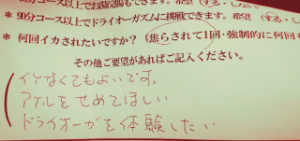 90分コース以上でドライオーガズムに挑戦できます。希望（する・し
* 何回イカされたいですか？（焦らされて1回・強制的に何回
その他ご要望があればご記入ください。
イケなくてもよいです。
アナルをせめてほしい
ドライオーガを体験したい